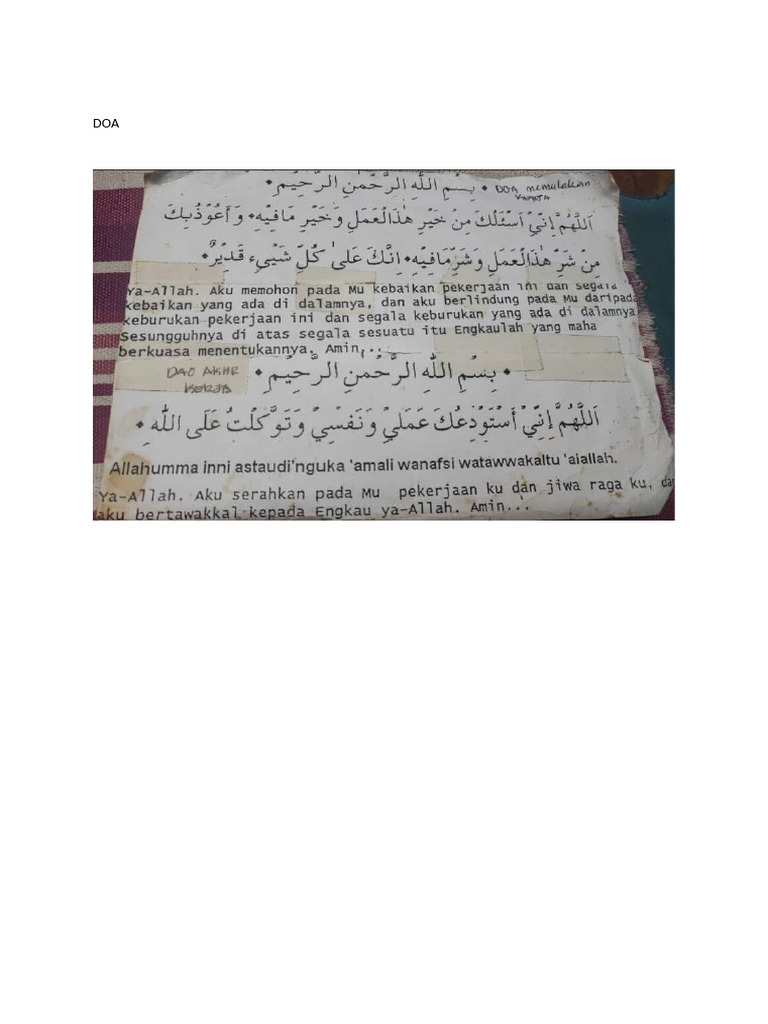 DOA
بِسْمِ اللهِ الرَّحْمنِ الرَّحِيْمِ • DOA memulakan
KERJA
اَللَّهُمَّ اِنِّيْ اَسْئَلُكَ مِنْ خَيْرِ هٰذَالْعَمَلِ وَخَيْرِ مَافِيْهِ • وَاَعُوْذُبِكَ
مِنْ شَرِّ هٰذَالْعَمَلِ وَشَرِّمَافِيْهِ • اِنَّكَ عَلىٰ كُلِّ شَيْىءٍ قَدِيْرٌ •
Ya-Allah. Aku memohon pada Mu kebaikan pekerjaan ini dan segala
kebaikan yang ada di dalamnya, dan aku berlindung pada Mu daripada
keburukan pekerjaan ini dan segala keburukan yang ada di dalamnya
Sesungguhnya di atas segala sesuatu itu Engkaulah yang maha
berkuasa menentukannya. Amin...
DAO AKHR
KERJA
• بِسْمِ اللهِ الرَّحْمنِ الرَّحِيْمِ •
اَللَّهُمَّ اِنِّيْ أَسْتَوْدِعُكَ عَمَلِيْ وَنَفْسِيْ وَتَوَّكَلْتُ عَلَى اللهِ •
Allahumma inni astaudi'nguka 'amali wanafsi watawwakaltu 'aiallah.
Ya-Allah. Aku serahkan pada Mu pekerjaan ku dan jiwa raga ku, da
aku bertawakkal kepada Engkau ya-Allah. Amin...